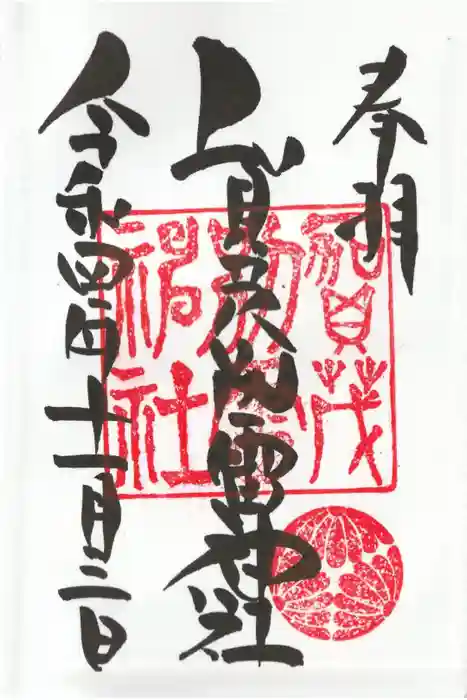 奉拝
賀茂別雷神社
令和四年十一月三日
賀茂
別雷
神社